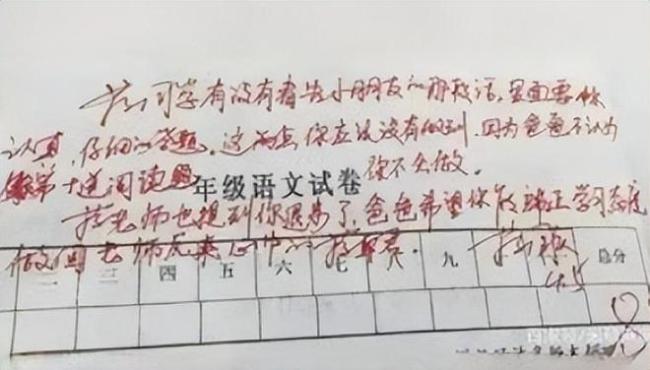 同学有没有看告小朋友的那段话,里面要你
认真,仔细的答题。这两点你应该没有做到,因为爸爸不认为
像第十道阅读题 你不会做。
年级语文试卷
老师也提到你退步了,爸爸希望你能端正学习态度
做回老师原来心中的
一 二 三 四 五 六 七 八 九 总分